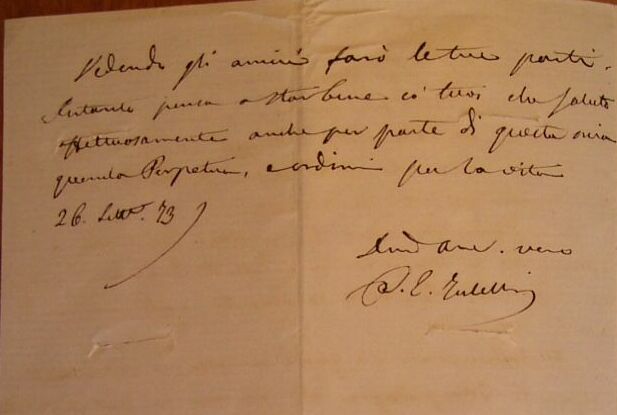 Vedendo gli amici farò le tue parti.
Intanto pensa a star bene co' tuoi che saluto
affettuosamente anche per parte di questa mia
Perpetua, e ordini per la vita
26. Sett. 73
vero